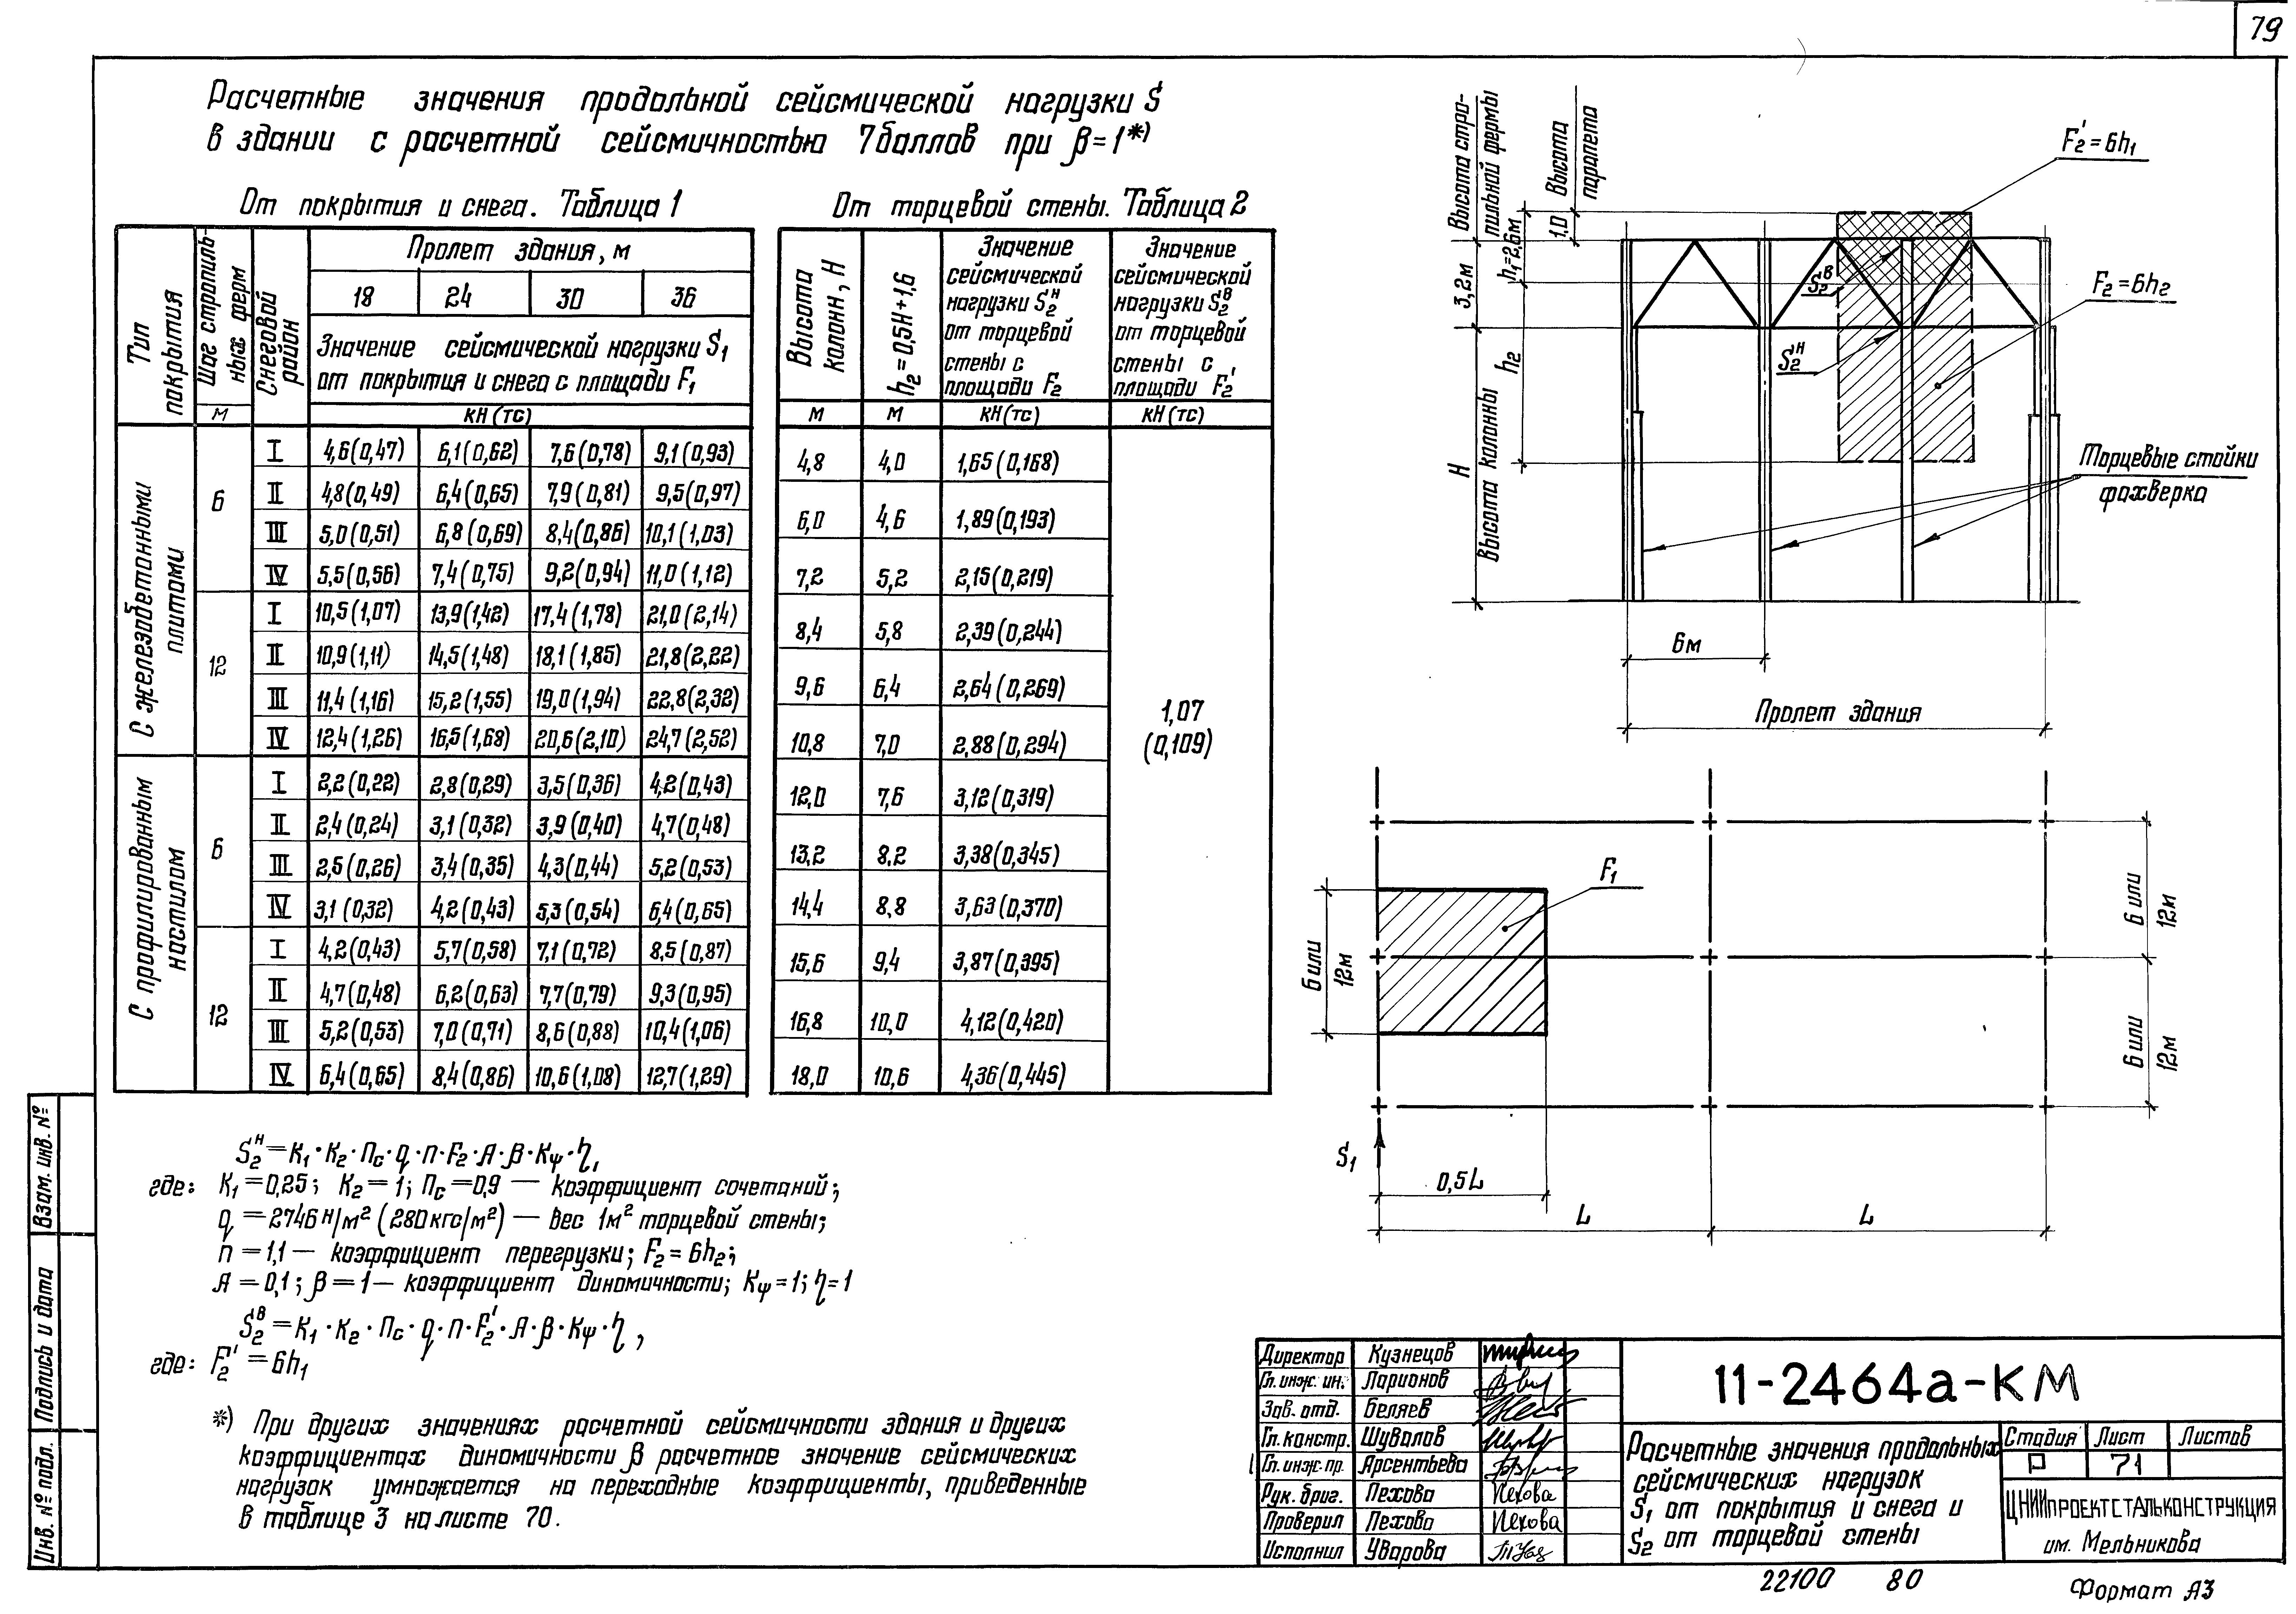 79
Расчетные значения продольной сейсмической нагрузки S
в здании с расчетной сейсмичностью 7 баллов при β=1*)
От покрытия и снега. Таблица 1
Тип покрытия
Шаг стропильных ферм
м
Снеговой район
Пролет здания, м
18 24 30 36
Значение сейсмической нагрузки S₁
от покрытия и снега с площади F₁
кН (тс)
С железобетонными плитами
6
I 4,6(0,47) 6,1(0,62) 7,6(0,78) 9,1(0,93)
II 4,8(0,49) 6,4(0,65) 7,9(0,81) 9,5(0,97)
III 5,0(0,51) 6,8(0,69) 8,4(0,86) 10,1(1,03)
IV 5,5(0,56) 7,4(0,75) 9,2(0,94) 11,0(1,12)
12
I 10,5(1,07) 13,9(1,42) 17,4(1,78) 21,0(2,14)
II 10,9(1,11) 14,5(1,48) 18,1(1,85) 21,8(2,22)
III 11,4(1,16) 15,2(1,55) 19,0(1,94) 22,8(2,32)
IV 12,4(1,26) 16,5(1,68) 20,6(2,10) 24,7(2,52)
С профилированным настилом
6
I 2,2(0,22) 2,8(0,29) 3,5(0,36) 4,2(0,43)
II 2,4(0,24) 3,1(0,32) 3,9(0,40) 4,7(0,48)
III 2,5(0,26) 3,4(0,35) 4,3(0,44) 5,2(0,53)
IV 3,1(0,32) 4,2(0,43) 5,3(0,54) 6,4(0,65)
12
I 4,2(0,43) 5,7(0,58) 7,1(0,72) 8,5(0,87)
II 4,7(0,48) 6,2(0,63) 7,7(0,79) 9,3(0,95)
III 5,2(0,53) 7,0(0,71) 8,6(0,88) 10,4(1,06)
IV 6,4(0,65) 8,4(0,86) 10,6(1,08) 12,7(1,29)
От торцевой стены. Таблица 2
Высота колонн, H
h₂=0,5H+1,6
Значение
сейсмической
нагрузки S₂ᴴ
от торцевой
стены с
площади F₂
Значение
сейсмической
нагрузки S₂ᴮ
от торцевой
стены с
площади F₂'
м м кН (тс) кН (тс)
4,8 4,0 1,65(0,168)
6,0 4,6 1,89(0,193)
7,2 5,2 2,15(0,219)
8,4 5,8 2,39(0,244)
9,6 6,4 2,64(0,269)
10,8 7,0 2,88(0,294)
12,0 7,6 3,12(0,319)
13,2 8,2 3,38(0,345)
14,4 8,8 3,63(0,370)
15,6 9,4 3,87(0,395)
16,8 10,0 4,12(0,420)
18,0 10,6 4,36(0,445)
1,07
(0,109)
S₂ᴴ=К₁·К₂·Пс·q·n·F₂·А·β·Кψ·η,
где: К₁=0,25; К₂=1; Пс=0,9 — коэффициент сочетаний;
q=2746 Н/м² (280 кгс/м²) — вес 1м² торцевой стены;
n=1,1— коэффициент перегрузки; F₂=6h₂;
А=0,1; β=1— коэффициент диномичности; Кψ=1; η=1
S₂ᴮ=К₁·К₂·Пс·q·n·F₂'·А·β·Кψ·η,
где: F₂'=6h₁
*) При других значениях расчетной сейсмичности здания и других
коэффициентах диномичности β расчетное значение сейсмических
нагрузок умножается на переходные коэффициенты, приведенные
в таблице 3 на листе 70.
Высота стропильной фермы
Высота парапета
3,2м
h₁=2,6м
1,0
h₂
H
Высота колонны
F₂'=6h₁
F₂=6h₂
S₂ᴮ
S₂ᴴ
Торцевые стойки
фахверка
6м
Пролет здания
F₁
6 или 12м
6 или 12м
6 или 12м
S₁
0,5L
L
L
Взам. инв. №
Подпись и дата
Инв. № подл.
Директор Кузнецов
Гл. инж. ин. Ларионов
Зав. отд. Беляев
Гл. констр. Шувалов
Гл. инж. пр. Арсентьева
Рук. бриг. Пехова Пехова
Проверил Пехова Пехова
Исполнил Уварова
11-2464а-КМ
Расчетные значения продольных
сейсмических нагрузок
S₁ от покрытия и снега и
S₂ от торцевой стены
Стадия Лист Листов
Р 71
ЦНИИПРОЕКТСТАЛЬКОНСТРУКЦИЯ
им. Мельникова
22100 80
Формат А3